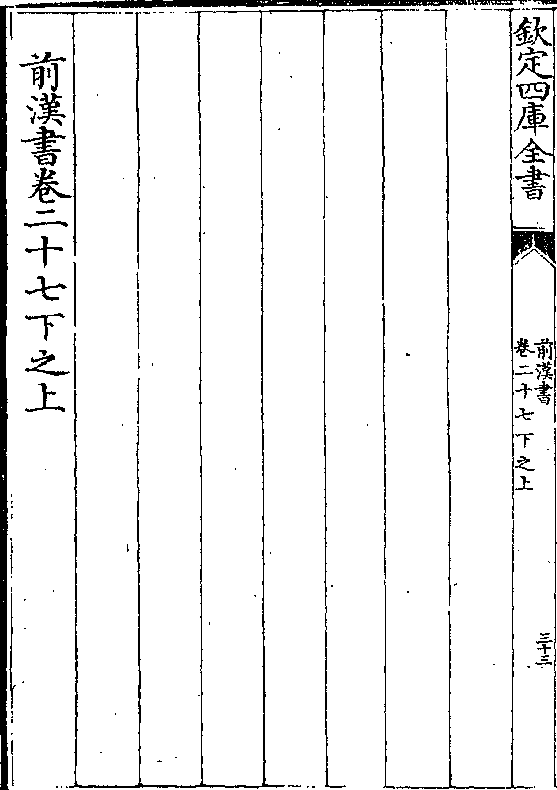 欽定四庫全書
前漢書
卷二十七下之上
三十三
前漢書卷二十七下之上